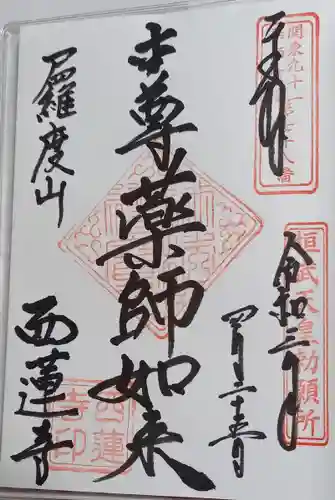 奉拝
関東九十一
桓武天皇勅願所
令和三年
四月二十五日
本尊薬師如来
尸羅度山
西蓮寺
西蓮
寺印